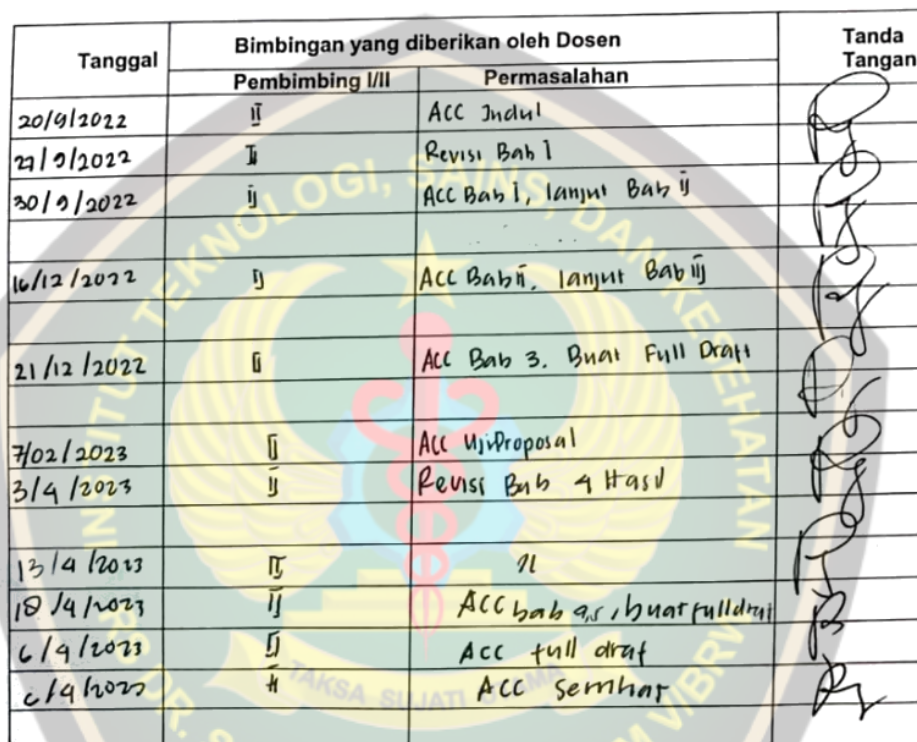 Tanggal
Bimbingan yang diberikan oleh Dosen
Tanda
Tangan
Pembimbing I/II
Permasalahan
20/9/2022 II ACC Judul
27/9/2022 II Revisi Bab I
30/9/2022 ij ACC Bab I, lanjut Bab ij
16/12/2022 ij ACC Bab ii, lanjut Bab iij
21/12/2022 II ACC Bab 3. Buat Full Draft
7/02/2023 II ACC Uji Proposal
3/4/2023 ij Revisi Bab 4 Hasil
13/4/2023 II
18/4/2023 ij ACC bab 4,5, buat full draf
6/4/2023 II ACC full draf
ACC semhas
INSTITUT TEKNOLOGI, SAINS, DAN KESEHATAN
TAKSA SUJATI UTAMA